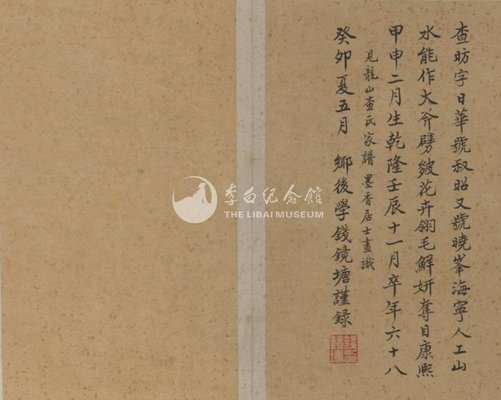 查昉字日華號叔昭又號曉峯海寧人工山
水能作大斧劈皴花卉翎毛鮮妍奪目康熙
甲申二月生乾隆壬辰十一月卒年六十八
見龍山查氏家譜 墨香居士畫識
癸卯夏五月 鄉後學錢鏡塘謹録
李白纪念馆
THE LIBAI MUSEUM